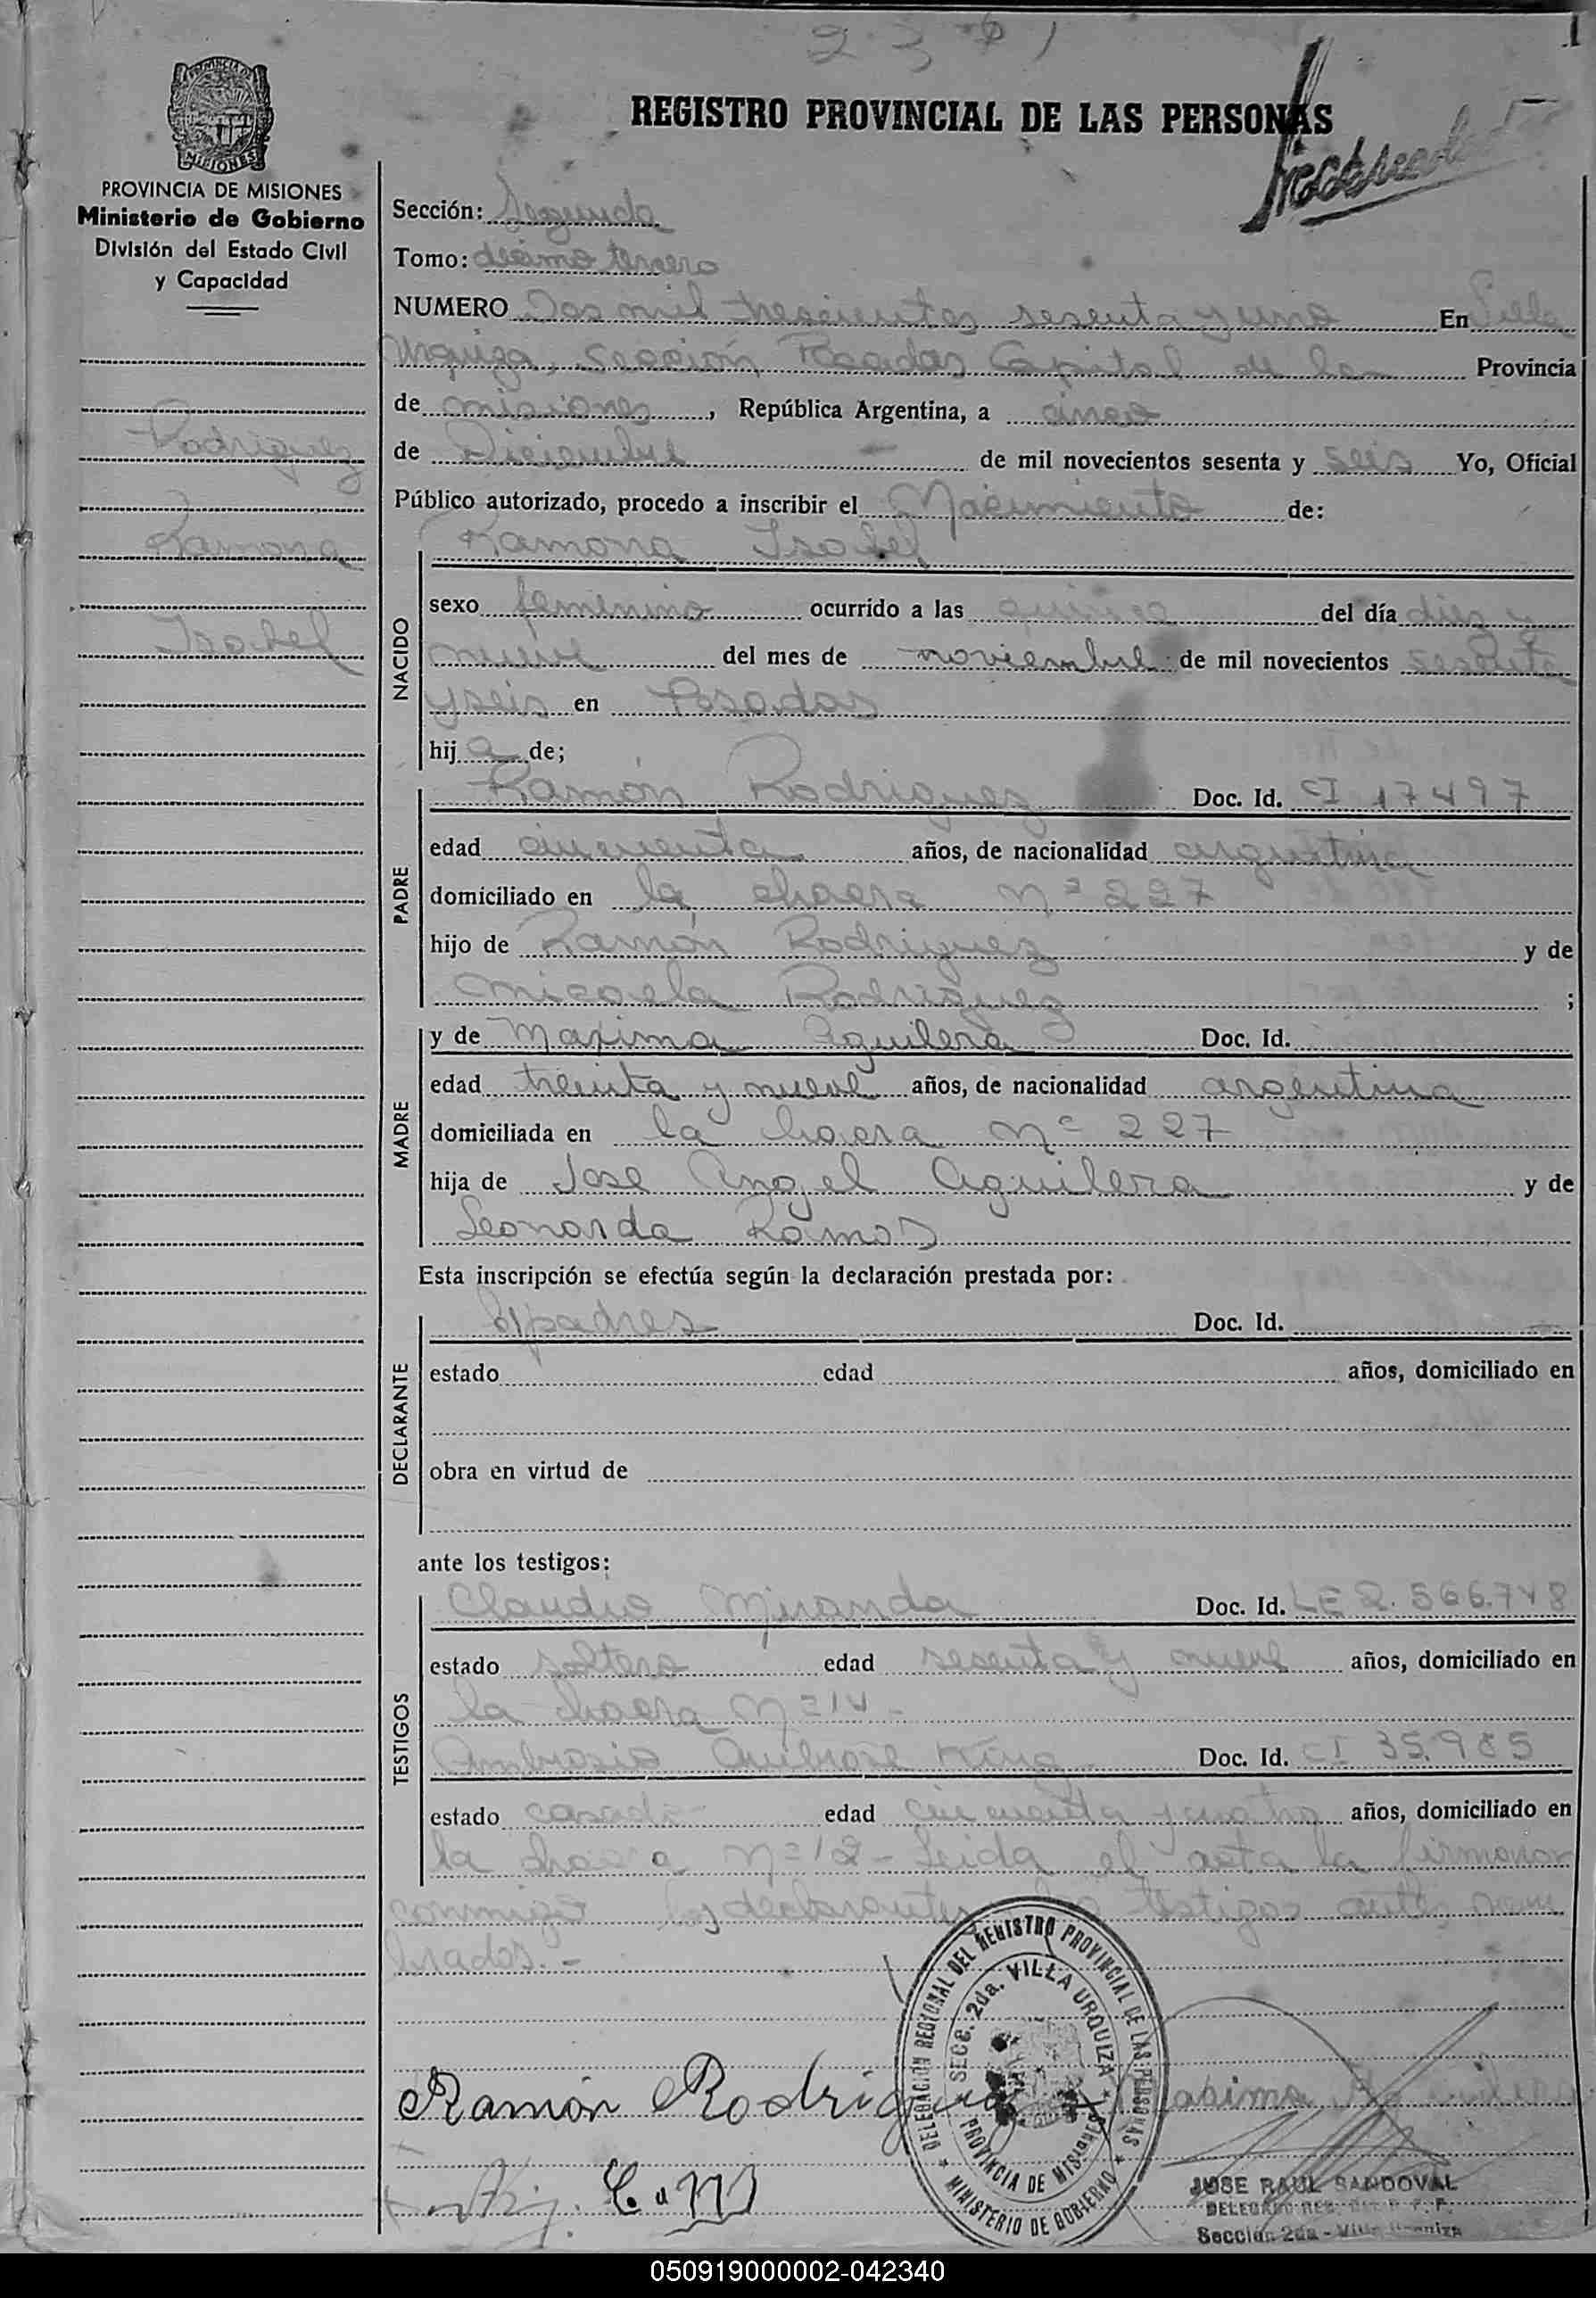 2361
1
REGISTRO PROVINCIAL DE LAS PERSONAS
MISIONES
PROVINCIA DE MISIONES
Ministerio de Gobierno
División del Estado Civil
y Capacidad
Rodriguez
Ramona
Isabel
Sección: Segunda
Tomo: décimo tercero
NUMERO Dos mil trescientos sesenta y uno En Villa
Urquiza, Sección Posadas Capital de la Provincia
de misiones, República Argentina, a cinco
de Diciembre de mil novecientos sesenta y seis Yo, Oficial
Público autorizado, procedo a inscribir el Nacimiento de:
Ramona Isabel
NACIDO
sexo femenino ocurrido a las quince del día diez y
nueve del mes de noviembre de mil novecientos sesenta
y seis en Posadas
hija de;
PADRE
Ramón Rodriguez Doc. Id. CI 17497
edad cincuenta años, de nacionalidad argentina
domiciliado en la chacra Nº 227
hijo de Ramón Rodriguez y de
Micaela Rodriguez ;
MADRE
y de Maxima Aguilera Doc. Id.
edad treinta y nueve años, de nacionalidad argentina
domiciliada en la chacra Nº 227
hija de Jose Angel Aguilera y de
Leonarda Ramos
Esta inscripción se efectúa según la declaración prestada por:
DECLARANTE
padres Doc. Id.
estado edad años, domiciliado en
obra en virtud de
ante los testigos:
TESTIGOS
Claudio Miranda Doc. Id. LE 2.566.748
estado soltero edad sesenta y nueve años, domiciliado en
la chacra Nº 14 -
Ambrosio King Doc. Id. CI 35.985
estado casado edad cincuenta y cuatro años, domiciliado en
la chacra Nº 12 - Leida el acta la firmaron
conmigo los declarantes testigos ante nom
brados. -
DELEGACION REGIONAL DEL REGISTRO PROVINCIAL DE LAS PERSONAS
SECC. 2da. VILLA URQUIZA
PROVINCIA DE MISIONES
MINISTERIO DE GOBIERNO
Ramón Rodriguez Maxima Aguilera
C. M
JOSE RAUL SANDOVAL
DELEGADO REG.
Sección 2da - Villa Urquiza
050919000002-042340